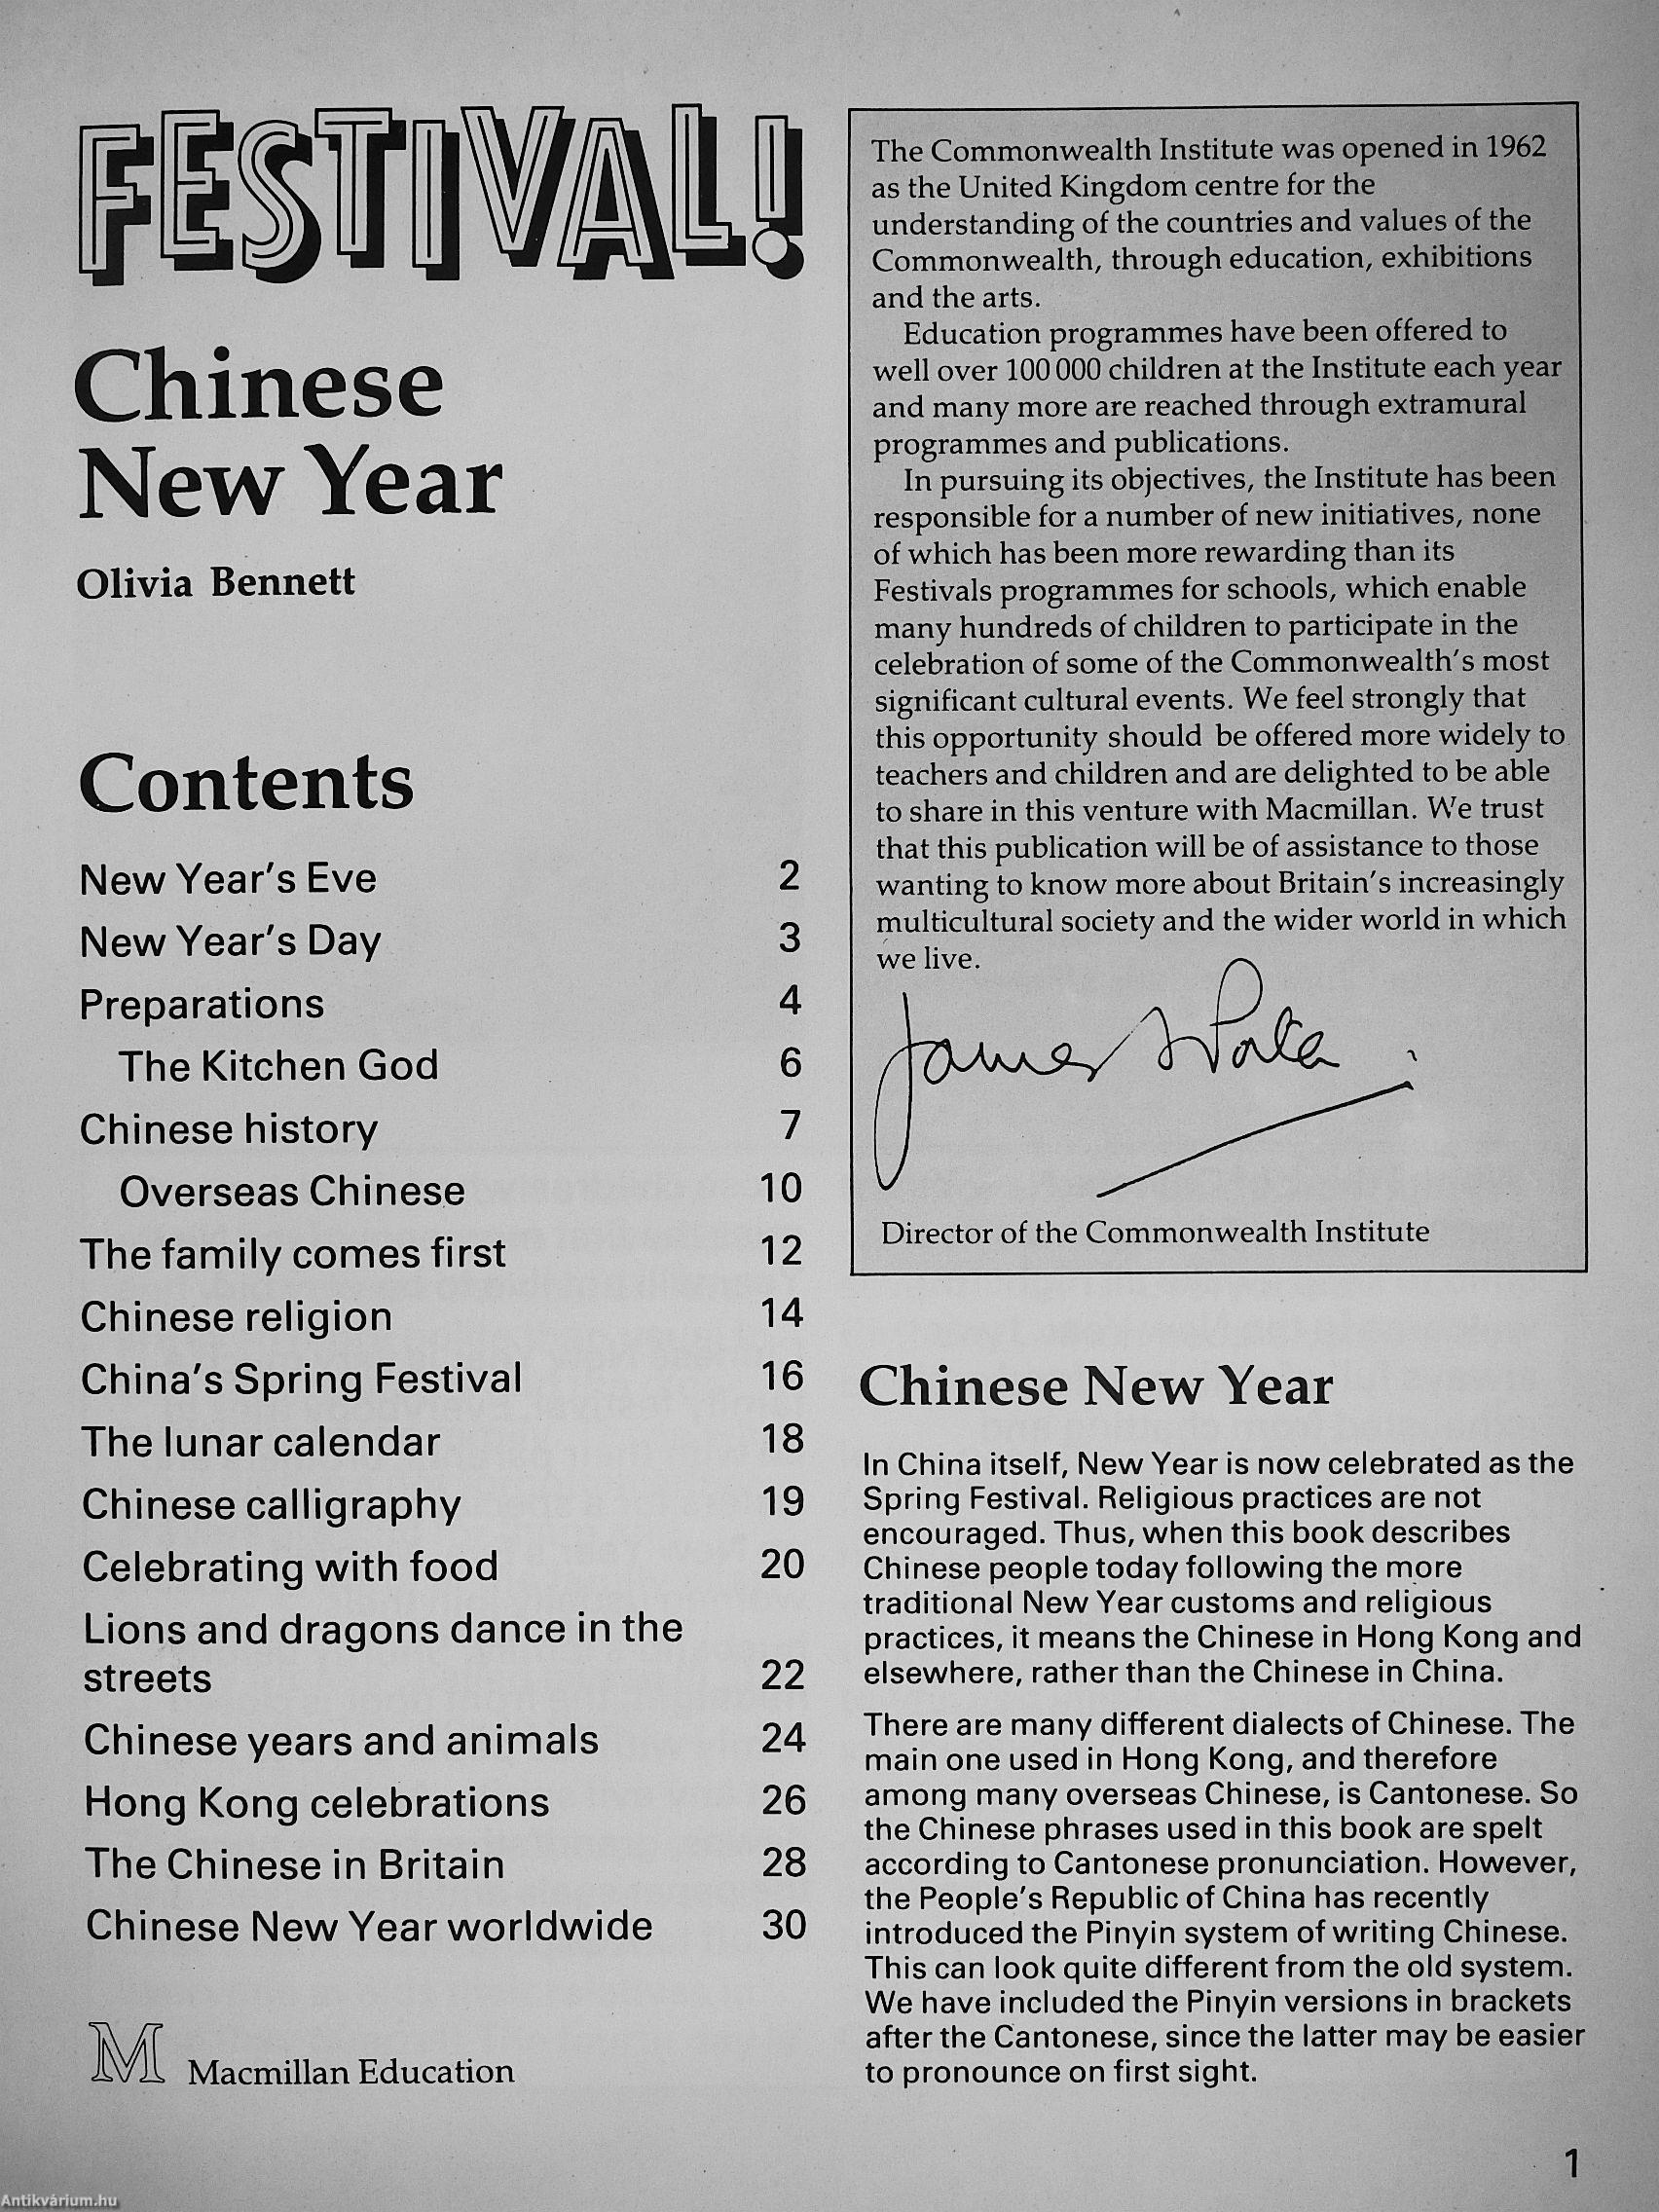 FESTIVAL!
Chinese
New Year
Olivia Bennett
Contents
New Year's Eve 2
New Year's Day 3
Preparations 4
The Kitchen God 6
Chinese history 7
Overseas Chinese 10
The family comes first 12
Chinese religion 14
China's Spring Festival 16
The lunar calendar 18
Chinese calligraphy 19
Celebrating with food 20
Lions and dragons dance in the
streets 22
Chinese years and animals 24
Hong Kong celebrations 26
The Chinese in Britain 28
Chinese New Year worldwide 30
M Macmillan Education
The Commonwealth Institute was opened in 1962
as the United Kingdom centre for the
understanding of the countries and values of the
Commonwealth, through education, exhibitions
and the arts.
Education programmes have been offered to
well over 100 000 children at the Institute each year
and many more are reached through extramural
programmes and publications.
In pursuing its objectives, the Institute has been
responsible for a number of new initiatives, none
of which has been more rewarding than its
Festivals programmes for schools, which enable
many hundreds of children to participate in the
celebration of some of the Commonwealth's most
significant cultural events. We feel strongly that
this opportunity should be offered more widely to
teachers and children and are delighted to be able
to share in this venture with Macmillan. We trust
that this publication will be of assistance to those
wanting to know more about Britain's increasingly
multicultural society and the wider world in which
we live.
James
Director of the Commonwealth Institute
Chinese New Year
In China itself, New Year is now celebrated as the
Spring Festival. Religious practices are not
encouraged. Thus, when this book describes
Chinese people today following the more
traditional New Year customs and religious
practices, it means the Chinese in Hong Kong and
elsewhere, rather than the Chinese in China.
There are many different dialects of Chinese. The
main one used in Hong Kong, and therefore
among many overseas Chinese, is Cantonese. So
the Chinese phrases used in this book are spelt
according to Cantonese pronunciation. However,
the People's Republic of China has recently
introduced the Pinyin system of writing Chinese.
This can look quite different from the old system.
We have included the Pinyin versions in brackets
after the Cantonese, since the latter may be easier
to pronounce on first sight.
1
Antikvárium.hu